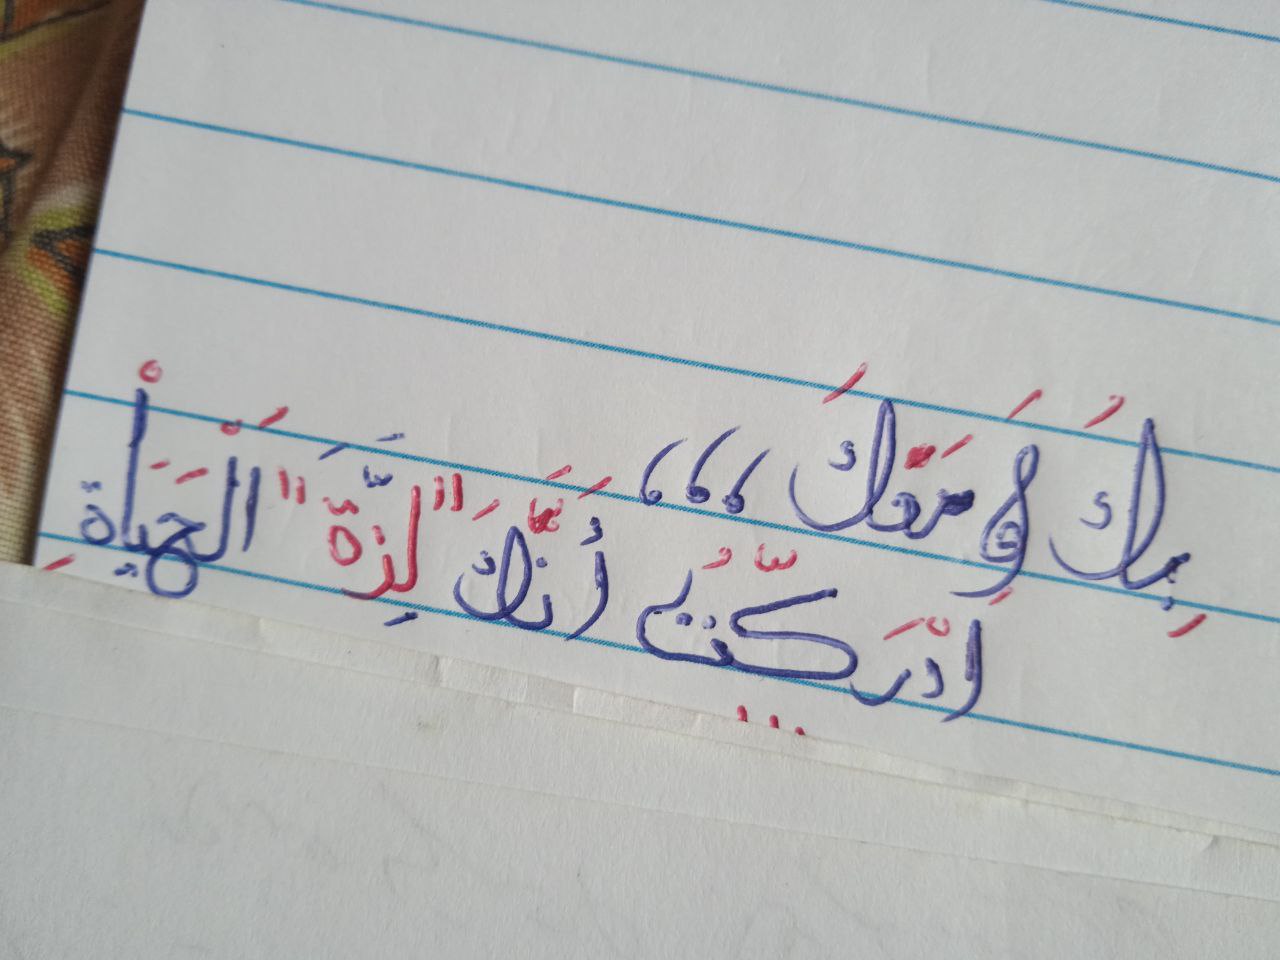 بِكَ وَ مَعَكَ ،،،
اَدْرَكتُ أَنَّكَ "لِزَّة" الْحَيَأْة
...